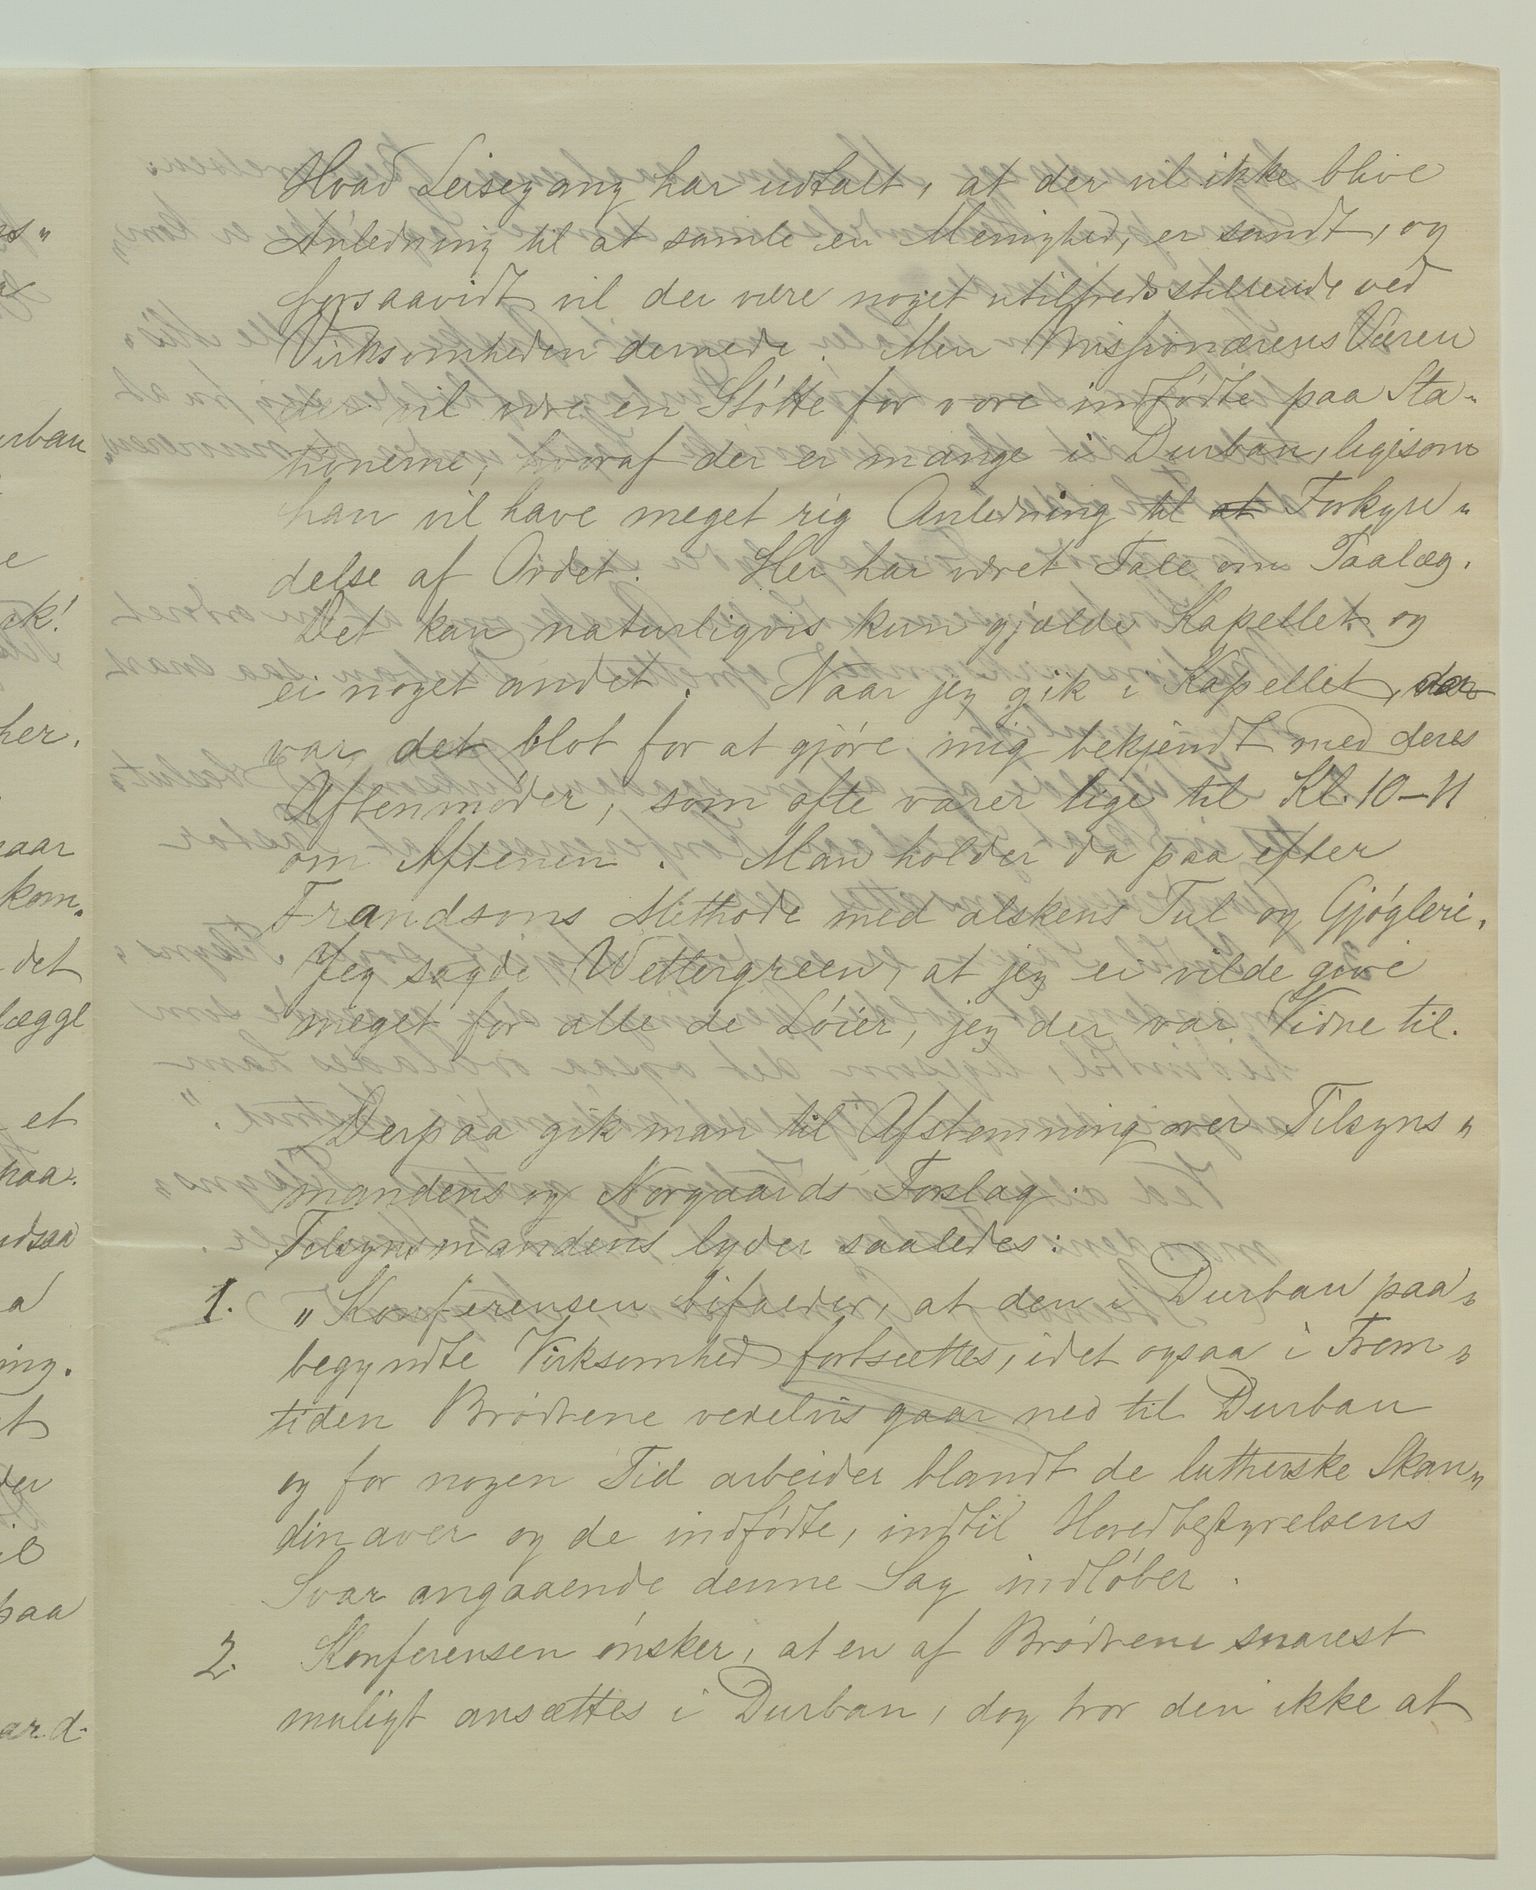 Hvad Leisegang har udtalt, at der vil ikke blive
Anledning til at samle en Menighed, er sandt, og
forsaavidt vil der være noget utilfredsstillende ved
Virksomheden dernede. Men Missionærens Væren
der vil være en Støtte for vore indfødte paa Sta-
tionerne, hvoraf der er mange i Durban, ligesom
han vil have meget rig Anledning til at Forkyn-
delse af Ordet. Her har været Tale om Paalæg.
Det kan naturligvis kun gjælde Kapellet og
ei noget andet. Naar jeg gik i Kapellet, var
var det blot for at gjøre mig bekjendt med deres
Aftenmøder, som ofte varer lige til Kl. 10-11
om Aftenen. Man holder da paa efter
Frandsons Methode med alskens Tul og Gjøgleri.
Jeg sagde Wettergreen, at jeg ei vilde give
meget for alle de Løier, jeg der var Vidne til.
Derpaa gik man til Afstemning over Tilsyns-
mandens og Norgaards Forslag.
Tilsynsmandens lyder saaledes:
1. "Konferensen bifalder, at den i Durban paa-
begyndte Virksomhed fortsættes, idet ogsaa i Frem-
tiden Brødrene vexelvis gaar ned til Durban
og for nogen Tid arbeider blandt de lutherske Skan-
dinaver og de indfødte, indtil Hovedbestyrelsens
Svar angaaende denne Sag indløber.
2. Konferensen ønsker, at en af Brødrene snarest
muligt ansættes i Durban, dog tror den ikke at
urban
e
ok!
her.
naar
kom.
det
lægge
et
paa
a
ning.
der
paa